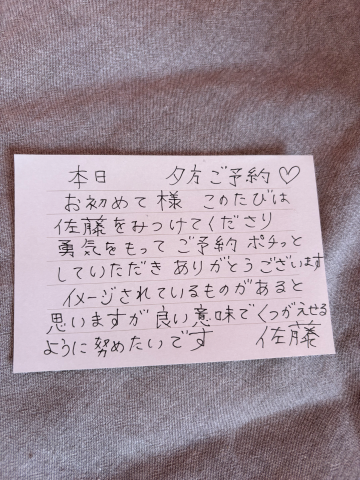 本日 夕方ご予約♡
お初めて様 このたびは
佐藤をみつけてくださり
勇気をもって ご予約 ポチッと
していただき ありがとうございます
イメージされているものがあると
思いますが 良い意味でくつがえせる
ように努めたいです 佐藤